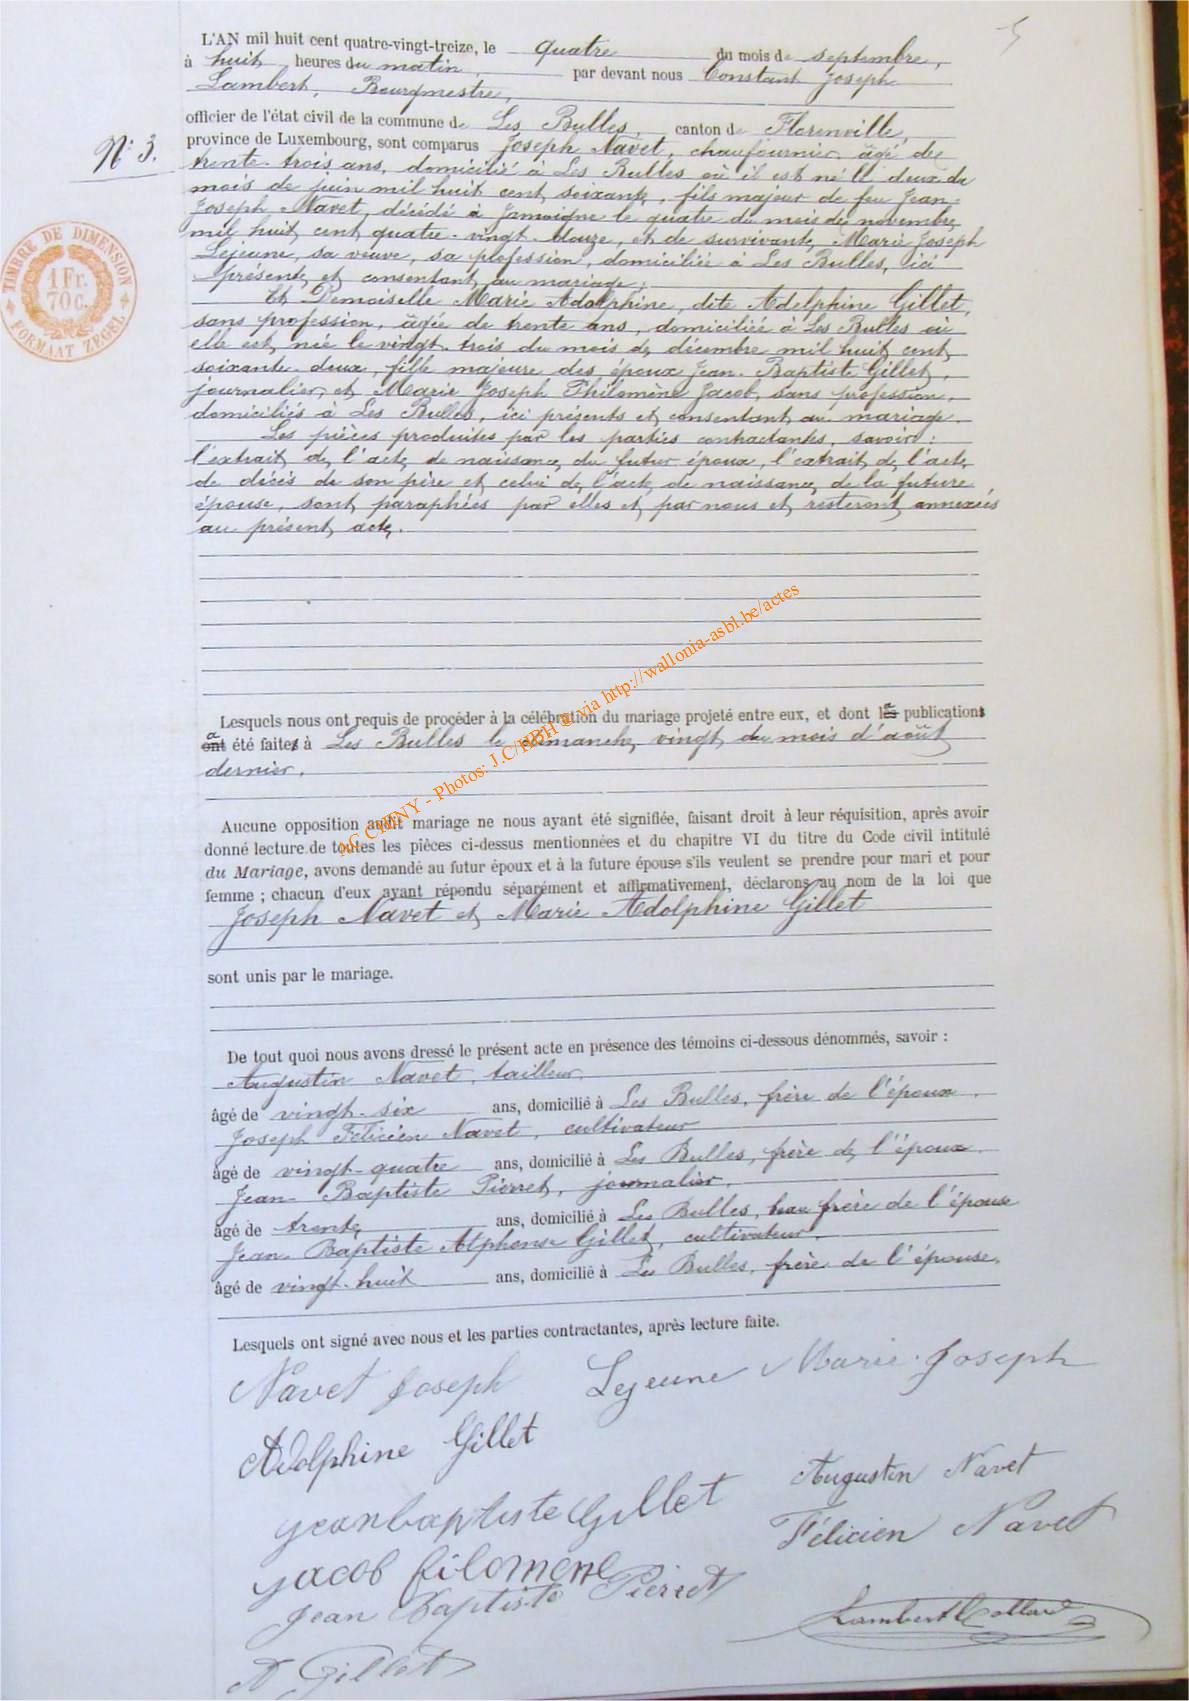 L'AN mil huit cent quatre-vingt-treize, le quatre du mois de septembre,
à huit heures du matin, par devant nous Constant Joseph
Lambert, Bourgmestre,
officier de l'état civil de la commune de Les Bulles, canton de Florenville,
province de Luxembourg, sont comparus Joseph Navet, chaufournier, âgé de
N° 3.
trente-trois ans, domicilié à Les Bulles où il est né le deux du
mois de juin mil huit cent soixante, fils majeur de feu Jean-
Joseph Navet, décédé à Jamoigne le quatre du mois de novembre
mil huit cent quatre-vingt-douze, et de survivante Marie Joseph
Lejeune, sa veuve, sa profession, domiciliée à Les Bulles, ici
présente et consentant au mariage;
TIMBRE DE DIMENSION
1 Fr.
70 c.
FORMAAT ZEGEL
Et Demoiselle Marie Adolphine, dite Adelphine Gillet,
sans profession, âgée de trente ans, domiciliée à Les Bulles où
elle est née le vingt-trois du mois de décembre mil huit cent
soixante-deux, fille majeure des époux Jean-Baptiste Gillet,
journalier, et Marie Joseph Philomène Jacob, sans profession,
domiciliés à Les Bulles, ici présents et consentant au mariage.
Les pièces produites par les parties contractantes, savoir:
l'extrait de l'acte de naissance du futur époux, l'extrait de l'acte
de décès de son père et celui de l'acte de naissance de la future
épouse, sont paraphées par elles et par nous et resteront annexés
au présent acte.
Lesquels nous ont requis de procéder à la célébration du mariage projeté entre eux, et dont la publication
a été faite à Les Bulles le dimanche vingt du mois d'août
dernier.
AC CHINY - Photos: J.C/HBH @ via http://wallonia-asbl.be/actes
Aucune opposition audit mariage ne nous ayant été signifiée, faisant droit à leur réquisition, après avoir
donné lecture de toutes les pièces ci-dessus mentionnées et du chapitre VI du titre du Code civil intitulé
du Mariage, avons demandé au futur époux et à la future épouse s'ils veulent se prendre pour mari et pour
femme ; chacun d'eux ayant répondu séparément et affirmativement, déclarons au nom de la loi que
Joseph Navet et Marie Adolphine Gillet
sont unis par le mariage.
De tout quoi nous avons dressé le présent acte en présence des témoins ci-dessous dénommés, savoir :
Augustin Navet, tailleur,
âgé de vingt-six ans, domicilié à Les Bulles, frère de l'époux.
Joseph Félicien Navet, cultivateur
âgé de vingt-quatre ans, domicilié à Les Bulles, frère de l'époux.
Jean-Baptiste Pierret, journalier,
âgé de trente ans, domicilié à Les Bulles, beau frère de l'épouse
Jean-Baptiste Alphonse Gillet, cultivateur,
âgé de vingt-huit ans, domicilié à Les Bulles, frère de l'épouse.
Lesquels ont signé avec nous et les parties contractantes, après lecture faite.
Navet Joseph Lejeune Marie-Joseph
Adolphine Gillet
Augustin Navet
jeanbaptiste Gillet
Félicien Navet
jacob filomene
Jean Baptiste Pierret
Lambert Collard
A Gillet